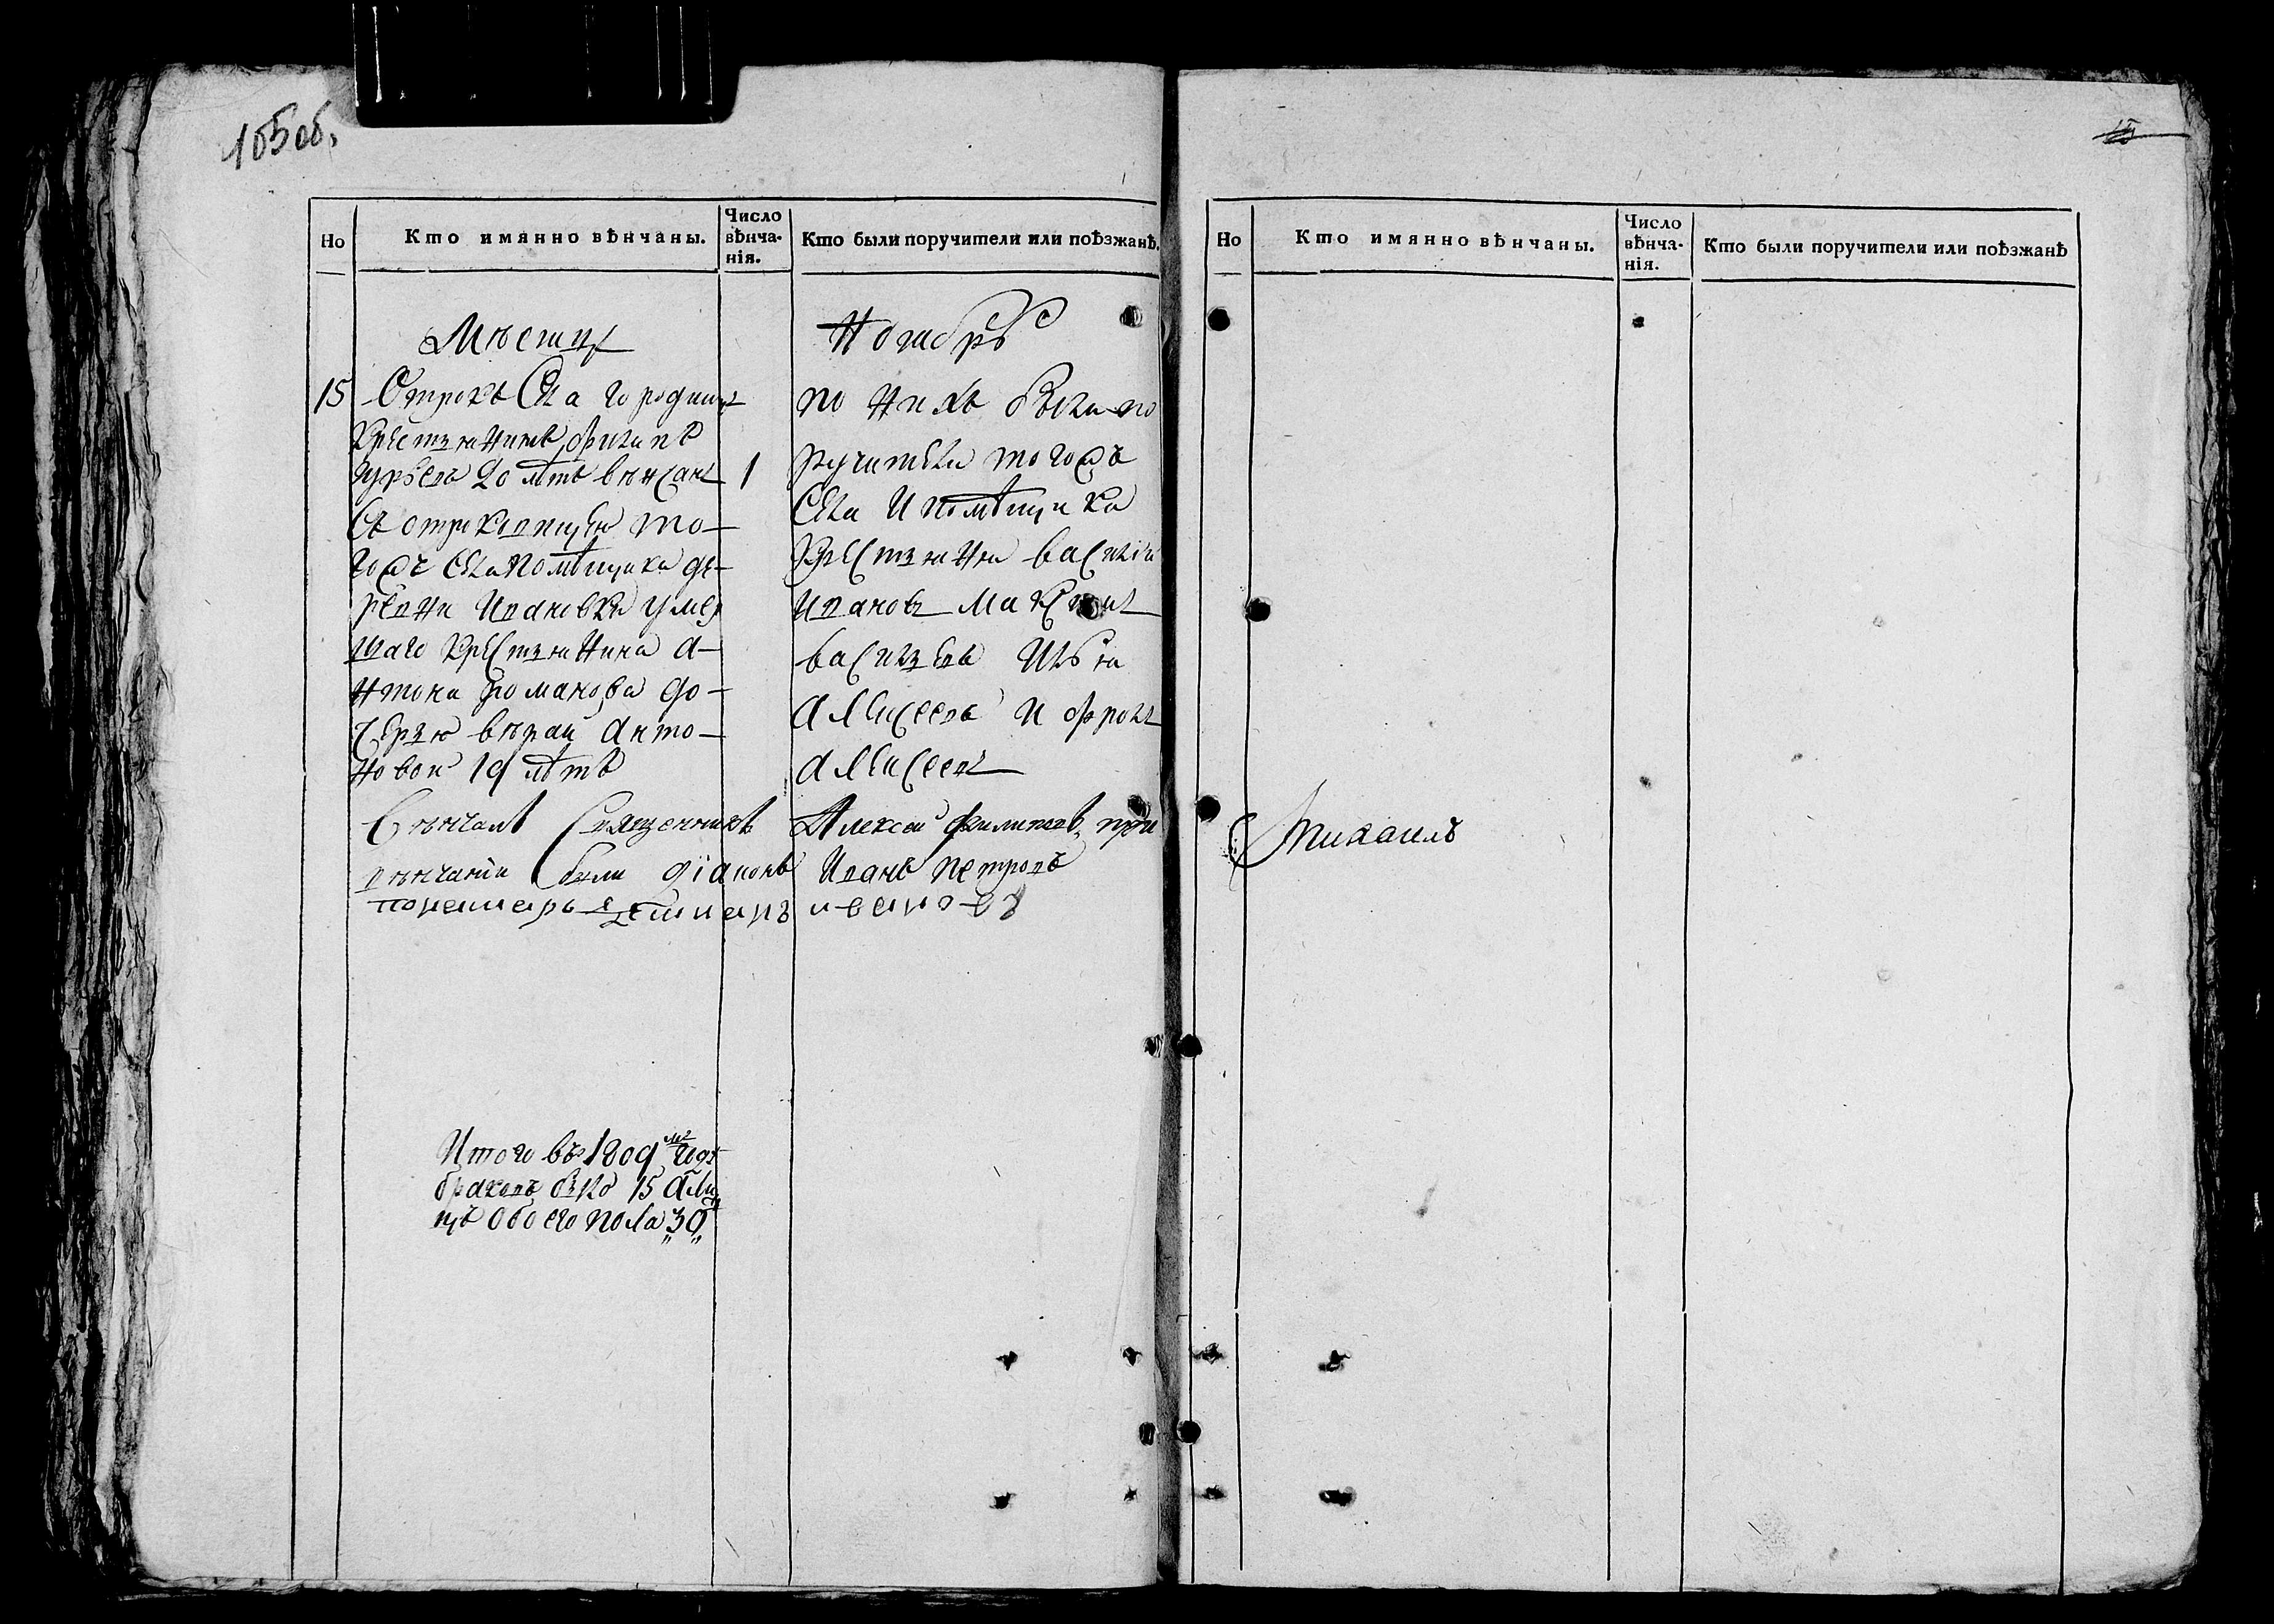 165 об.
Но
Кто имянно вѣнчаны.
Число вѣнча-нія.
Кто были поручители или поѣзжанѣ.
Мѣсяцъ
Ноябрь
15 Отрокъ села городищ
крестьянинъ филипъ
гурьевъ 20 лѣтъ венчанъ 1
съ отроковицею то-
гожъ села помѣщика де-
ревни Ивановки умер
шаго крестьянина а-
нтона романова до-
черью верай анто-
новои 19 лѣтъ
по нихъ были по
ручители тогожъ
села и помѣщика
крестьяни василіи
ивановъ максимъ
васильевъ илья
алексеевъ и фролъ
алексеевъ
Венчалъ священникъ Алексеи филиповъ, при
венчании были діаконъ Иванъ петровъ
пономарь ивановъ
Итого въ 1809 мъ годѣ
браковъ было 15 а ли
цъ обоего пола 30
Но
Кто имянно вѣнчаны.
Число вѣнча-нія.
Кто были поручители или поѣзжанѣ
Михаилъ